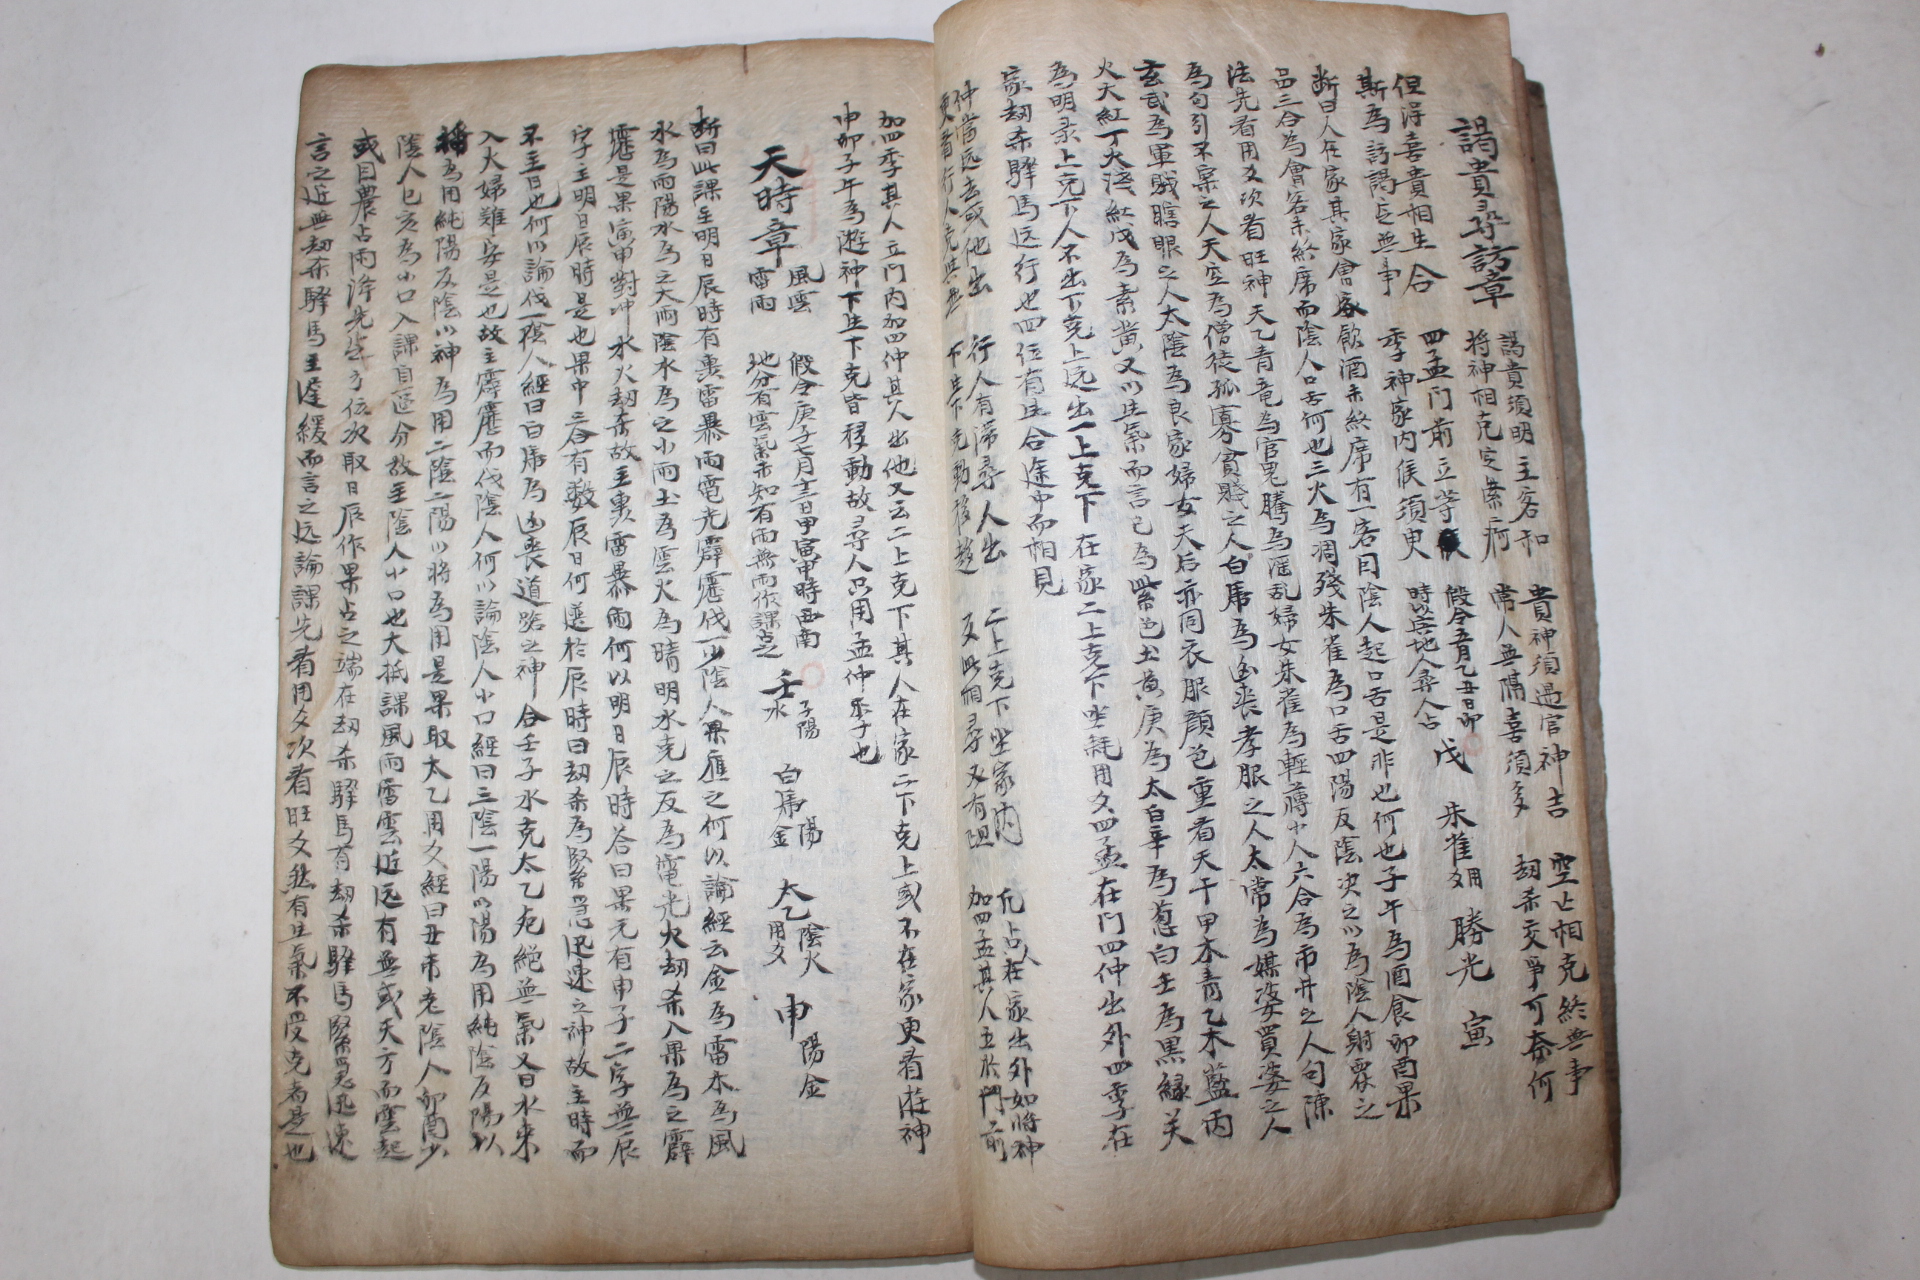 謁貴尋訪章
謁貴須明主客和 貴神須遇官神吉 空亡相克終無事
將神相克定 常人無隔喜須多 劫杀交爭可奈何
但得喜貴相生合 四孟門前立等候 假令五月乙丑日卯 戊 朱雀 用爻 勝光 寅
斯為訪謁定無事 季神家内候須臾 時 地 人占
断曰人在家其家會客飲酒未終席有一客因陰人起口舌是非也何也子午為酒食卯酉果
品三合為會客未終席而陰人口舌何也三火為凋殘朱雀為口舌四陽反陰決之以為陰人 之
法先看用爻次看旺神天乙青竜為官鬼騰為淫乱婦女朱雀為輕薄小人六合為市井之人句陳
為句引不 之人天空為僧徒孤寡貧賤之人白乕為凶喪孝服之人太常為媒婆買婆之人
玄武為軍賊瞎眼之人太陰為良家婦女天后亦同衣服顔色重看天干甲木青乙木藍丙
火大紅丁火淺紅戊為素黄又以生氣而言己為紫色土黄庚為太白辛為葱白壬為黒緑
為明录上克下人不出下克上远出一上克下在家二上克下坐 用爻四孟在門四仲出外四季在
家劫杀驛馬远行也四位有生合途中而相見
仲當远去或他出 行人有滞尋人出 二上克下坐家内 凡占人在家出外如將神
更看行人克與無 下生下克動移 又此相尋又有阻 加四孟其人立於門前
加四季其人立門内加四仲其人出他又云二上克下其人在家二下克上或不在家更看遊神
申卯子午為遊神下生下克皆移動故尋人只用孟仲季也
天時章
風雲 假令庚子七月十三日甲寅申時西南 壬水 子陽 白乕金 陽 太乙 陰火 用爻 申 陽金
雷雨 地分有雲氣未知有雨無雨依課占之
断曰此課主明日辰時有異雷暴雨電光霹靂伐一少陰人果應之何以論經云金為雷木為風
水為雨陽水為之大雨陰水為之小雨土為雲火為晴明水克之反為電光火劫杀入果為之霹
靂是果寅申對冲水火劫杀故主異雷暴雨何以明日辰時答曰果元有申子二字無辰
字主明日辰時是也果中三合有数辰日何 於辰時曰劫杀為緊急迅速之神故主時而
不主日也何以論伐一陰人經曰白乕為凶喪道路之神合壬子水克太乙死絶無氣又曰水來
入火婦難安是也故主霹靂而伐陰人何以論陰人小口經曰三陰一陽以陽為用純陰反陽以
為用純陽反陰以神為用二陰二陽以將為用是果取太乙用爻經曰丑 老陰人卯酉少
陰人巳亥為小口入課自 分故主陰人小口也大抵課風雨雷雲近远有無或天方而雲起
或因農占雨 先 方位次取日辰作果占之端在劫杀驛馬有劫杀驛馬緊急迅速
言之近無劫杀驛馬主遲緩而言之远論課先看用爻次看旺爻然有生氣不受克者是也